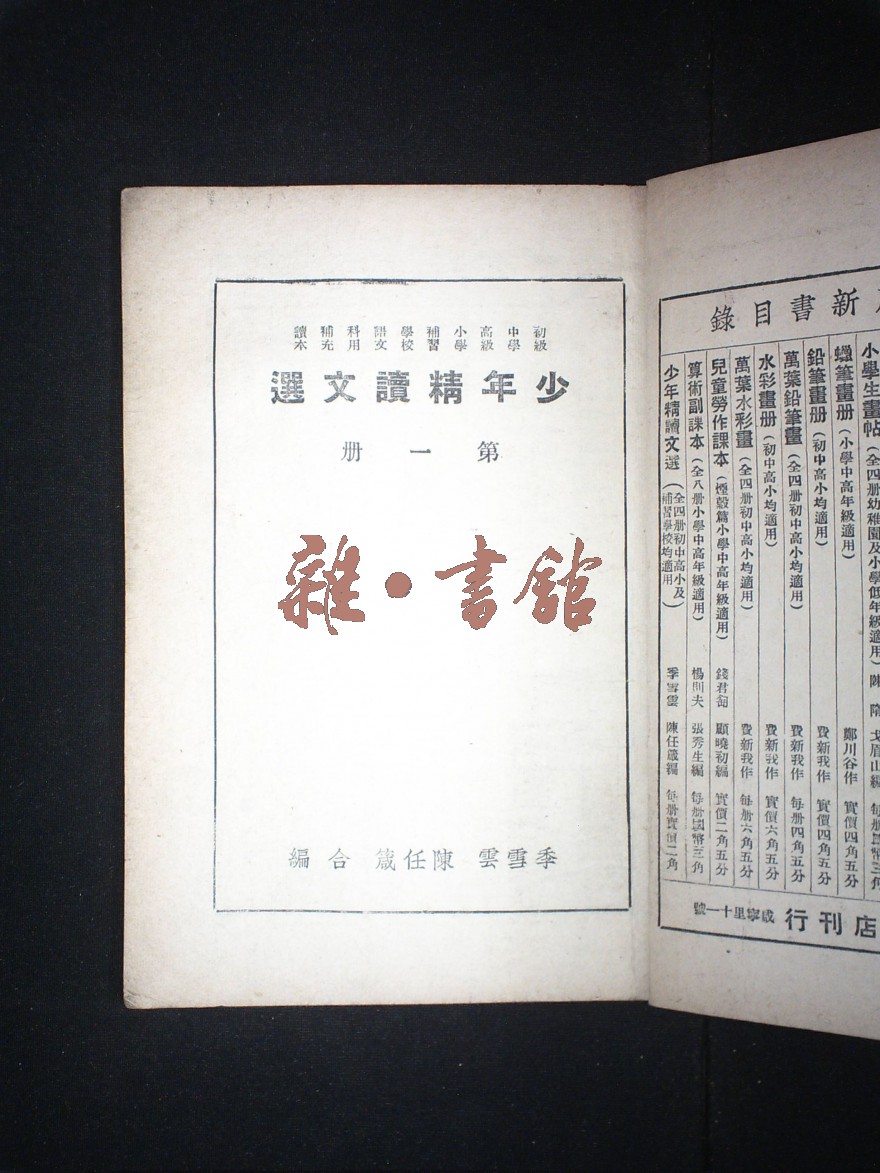 初級中學高級小學補習學校語文科用補充讀本
少年精讀文選
第一册
雜·書館
季雪雲 陳任箴 合編
新書目錄
小學生畫帖(全四册幼稚園及小學低年級適用)
蠟筆畫册(小學中高年級適用) 鄭川谷作 實價四角五分
鉛筆畫册(初中高小均適用) 費新我作 實價四角五分
萬葉鉛筆畫(全四册初中高小均適用) 費新我作 每册四角五分
水彩畫册(初中高小均適用) 費新我作 實價六角五分
萬葉水彩畫(全四册初中高小均適用) 費新我作 每册六角五分
兒童勞作課本(煙殼篇小學中高年級適用) 錢君匋 顧曉初編 實價二角五分
算術副課本(全八册小學中高年級適用) 張秀生編 每册國幣三角
少年精讀文選(全四册初中高小及補習學校均適用) 季雪雲 陳任箴編 每册實價二角
店刊行 咸寧里十一號